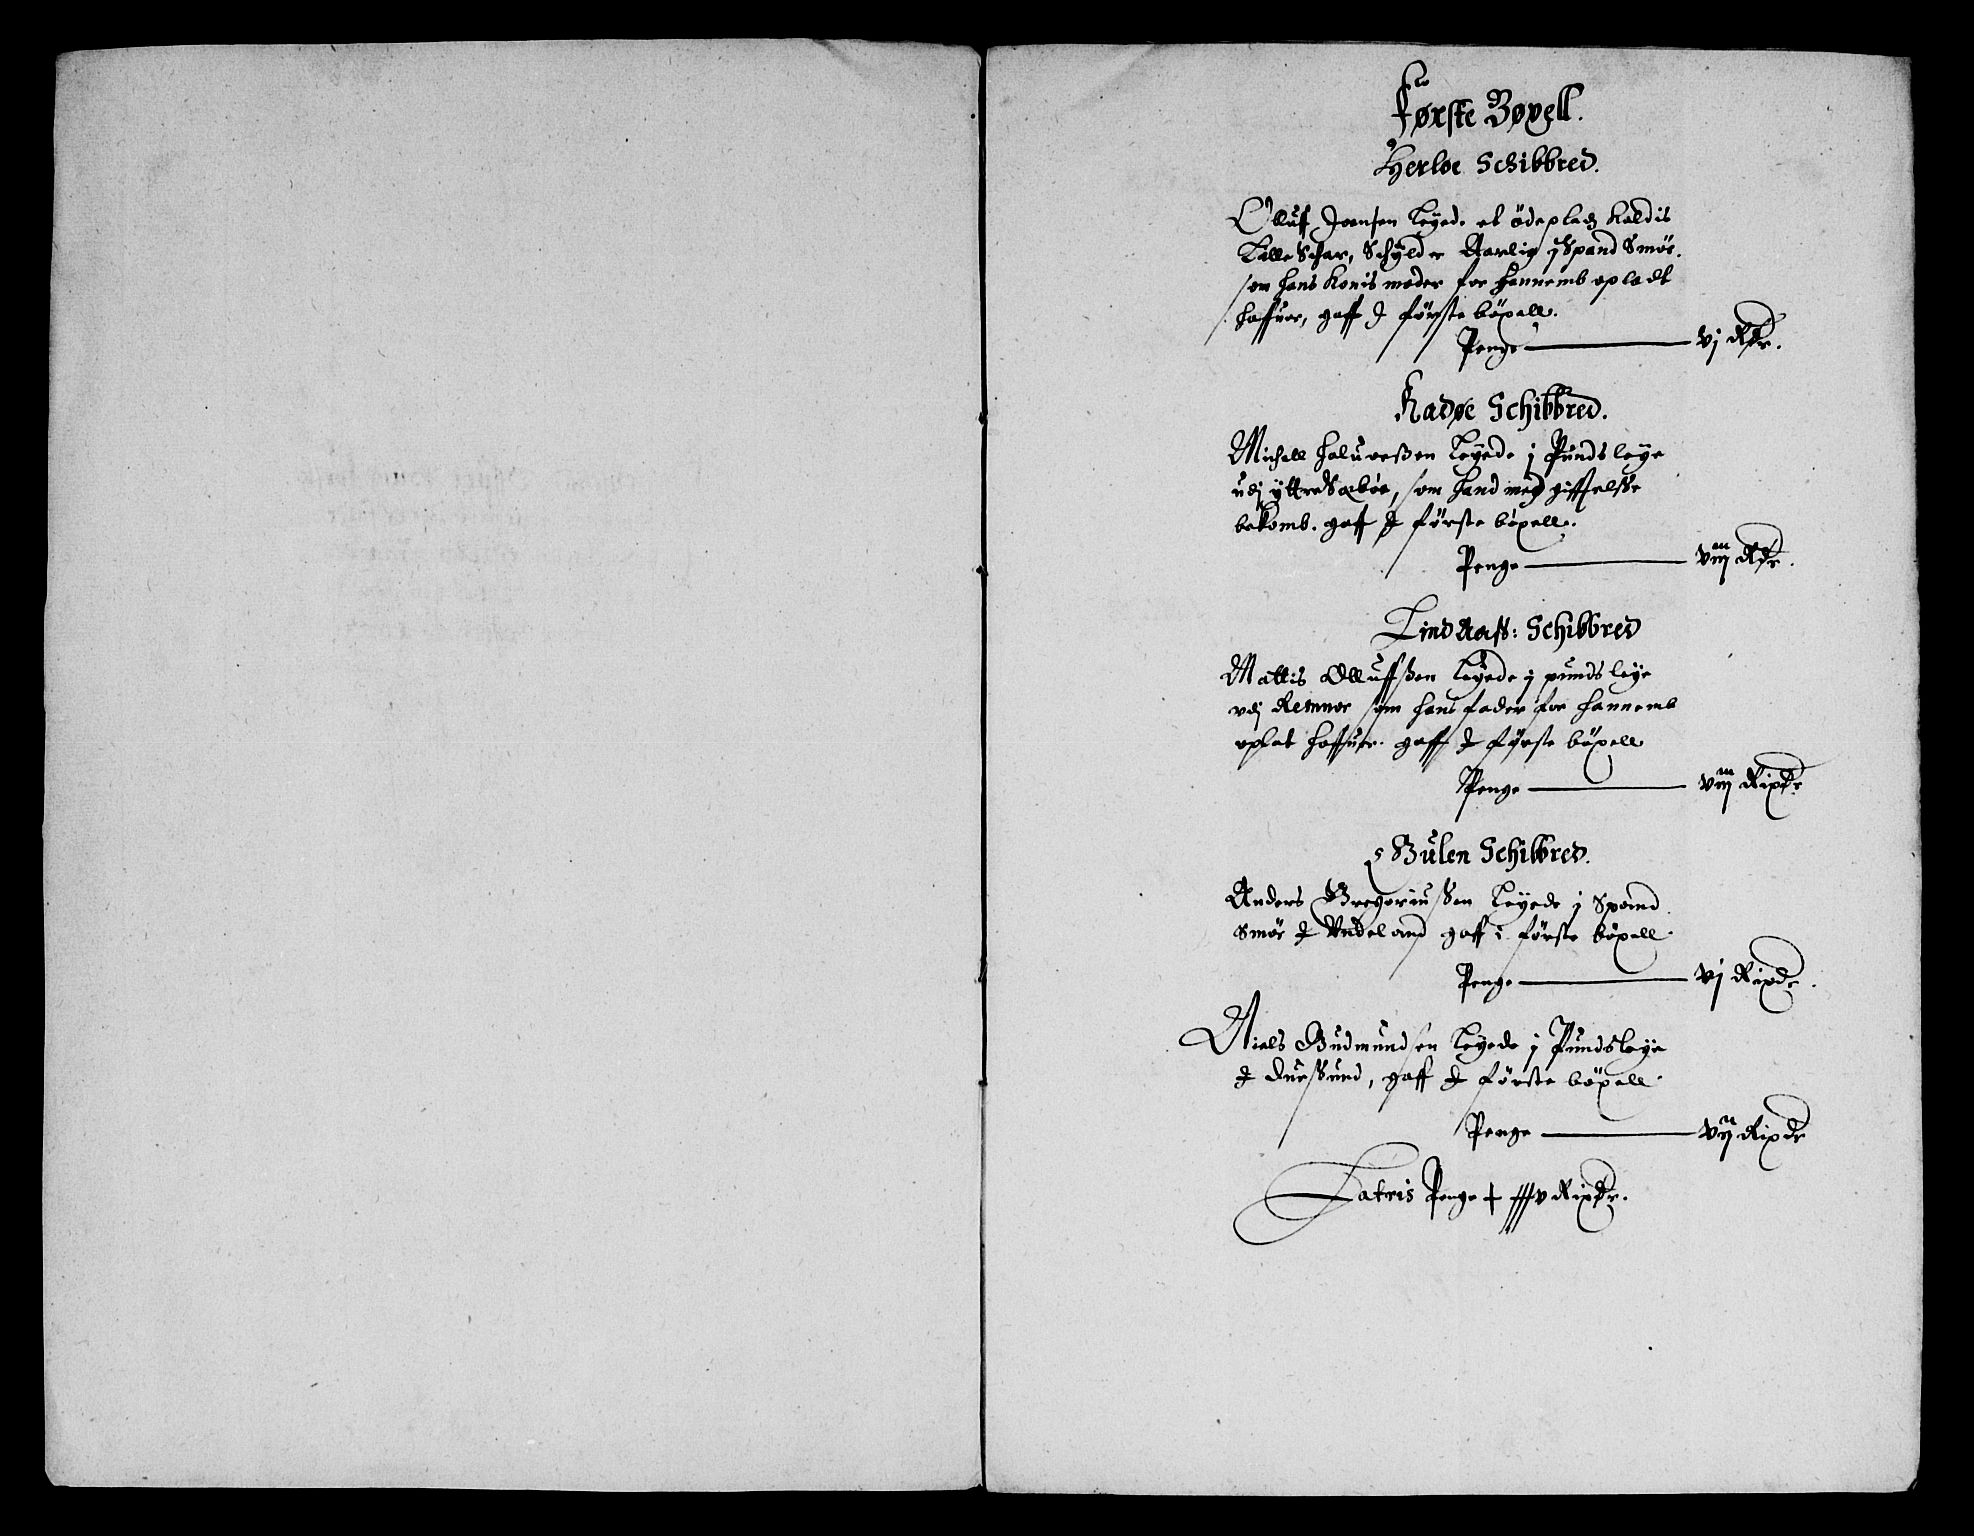 Første Bøxell.
Herløe Schibbred.
Olluf Joensen Leyede et ødepladz Kaldis
Lille Schar, Schylder Aarlig j Spand Smør.
som hans Konis moder for hannemb opladt
haffuer, gaff J første bøxell.
Penge — vj Rdr.
Radøe Schibbred.
Michell Haluorßen Leyede j Pundsleye
udj yttre Sæbøe, som hand med gifftelsse
bekomb. gaff J første bøxell.
Penge — viij Rdr.
Lindaas: Schibbred
Mattis Olluffßen Leyede j pundsleye
vdj Remner som hans fader for hannemb
oplat haffuer. gaff J første bøxell
Penge — viij Rixdr
Gulen Schibbred.
Anders Gregoriussen Leyede j Spand
Smør J Vndeland gaff i første bøxell
Penge — vj Rixdr.
Niels Gudmundsen Leyede j Pundsleye
J Duesund, gaff J første bøxell
Penge — vij Rixdr
Latris Penge + xxxv Rixdr.